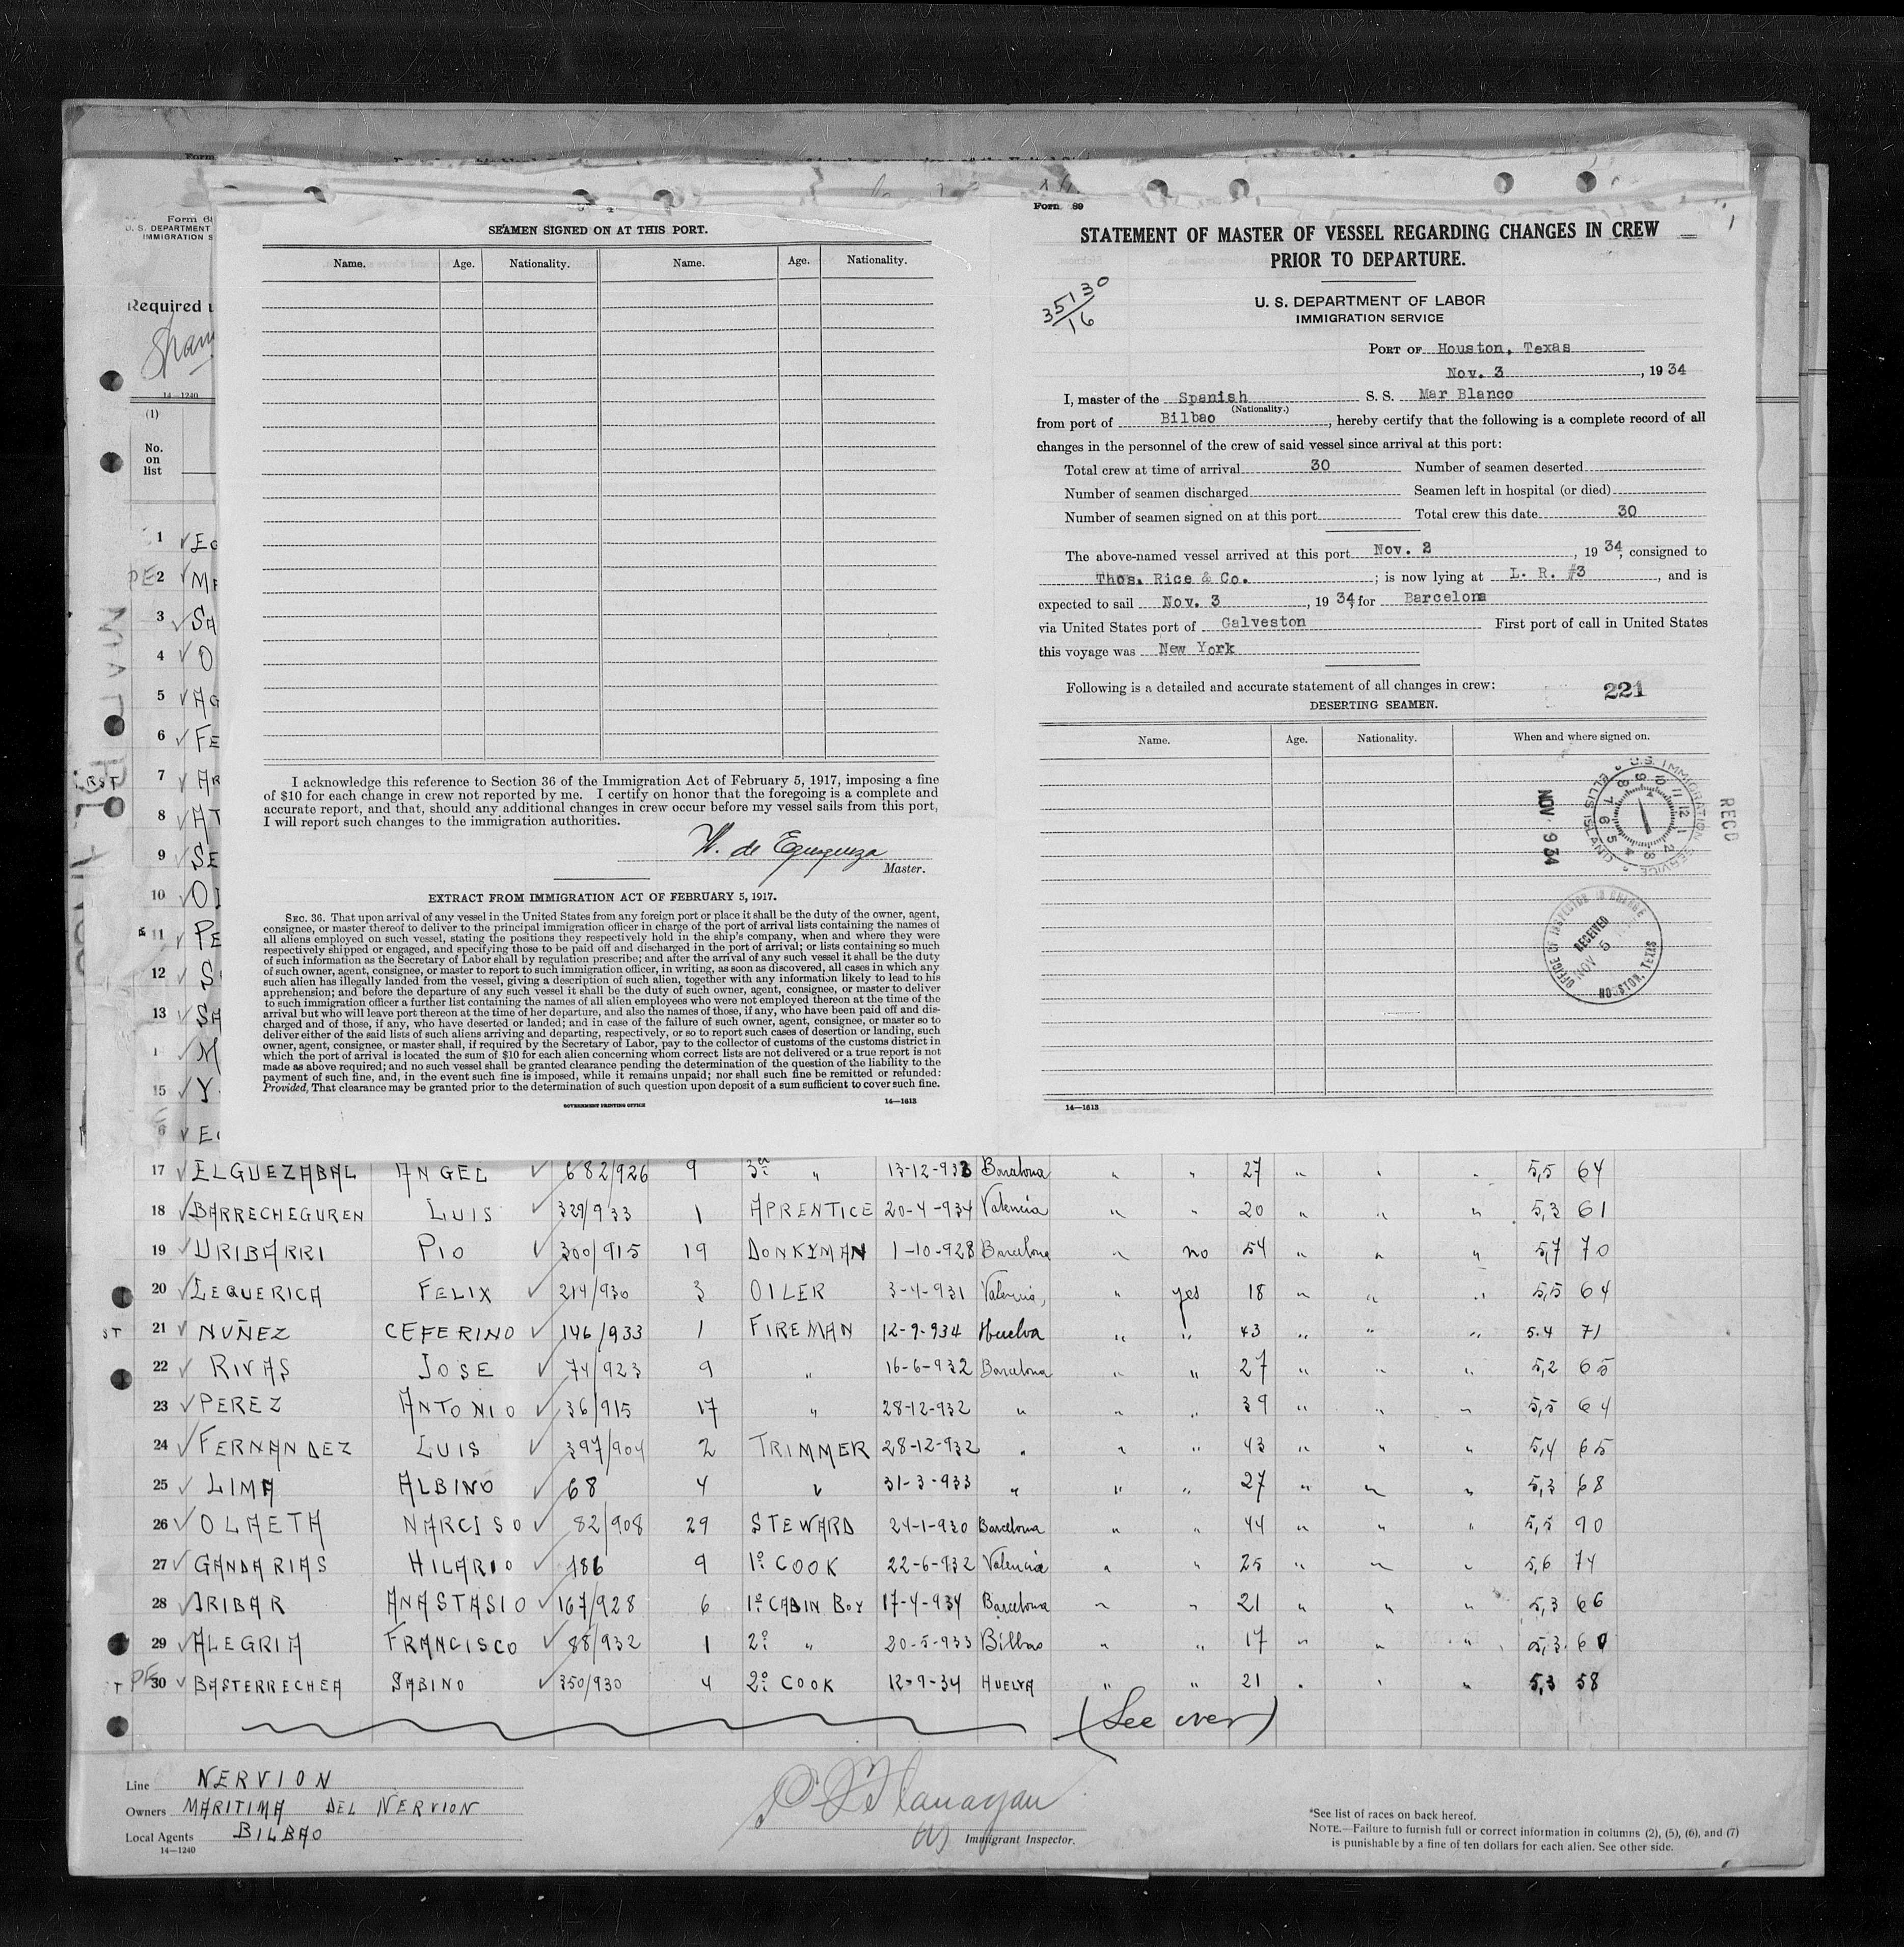 Form 68
U. S. DEPARTMENT
IMMIGRATION S
Required u
Sham
14—1240
(1)
No.
on
list
1 ✓ EG
PE 2 ✓ MA
3 ✓ SA
4 ✓ O
5 ✓ AG
6 ✓ FE
7 ✓ AR
8 ✓ AT
9 ✓ SE
10 ✓ OL
11 ✓ PE
12 ✓ S
13 ✓ SA
1 ✓ M
15 ✓ Y
6 ✓ E
SEAMEN SIGNED ON AT THIS PORT.
Name. Age. Nationality. Name. Age. Nationality.
I acknowledge this reference to Section 36 of the Immigration Act of February 5, 1917, imposing a fine
of $10 for each change in crew not reported by me. I certify on honor that the foregoing is a complete and
accurate report, and that, should any additional changes in crew occur before my vessel sails from this port,
I will report such changes to the immigration authorities.
Master.
EXTRACT FROM IMMIGRATION ACT OF FEBRUARY 5, 1917.
SEC. 36. That upon arrival of any vessel in the United States from any foreign port or place it shall be the duty of the owner, agent,
consignee, or master thereof to deliver to the principal immigration officer in charge of the port of arrival lists containing the names of
all aliens employed on such vessel, stating the positions they respectively hold in the ship's company, when and where they were
respectively shipped or engaged, and specifying those to be paid off and discharged in the port of arrival; or lists containing so much
of such information as the Secretary of Labor shall by regulation prescribe; and after the arrival of any such vessel it shall be the duty
of such owner, agent, consignee, or master to report to such immigration officer, in writing, as soon as discovered, all cases in which any
such alien has illegally landed from the vessel, giving a description of such alien, together with any information likely to lead to his
apprehension; and before the departure of any such vessel it shall be the duty of such owner, agent, consignee, or master to deliver
to such immigration officer a further list containing the names of all alien employees who were not employed thereon at the time of the
arrival but who will leave port thereon at the time of her departure, and also the names of those, if any, who have been paid off and dis-
charged and of those, if any, who have deserted or landed; and in case of the failure of such owner, agent, consignee, or master so to
deliver either of the said lists of such aliens arriving and departing, respectively, or so to report such cases of desertion or landing, such
owner, agent, consignee, or master shall, if required by the Secretary of Labor, pay to the collector of customs of the customs district in
which the port of arrival is located the sum of $10 for each alien concerning whom correct lists are not delivered or a true report is not
made as above required; and no such vessel shall be granted clearance pending the determination of the question of the liability to the
payment of such fine, and, in the event such fine is imposed, while it remains unpaid; nor shall such fine be remitted or refunded:
Provided, That clearance may be granted prior to the determination of such question upon deposit of a sum sufficient to cover such fine.
GOVERNMENT PRINTING OFFICE 14—1613
Form 89
STATEMENT OF MASTER OF VESSEL REGARDING CHANGES IN CREW
PRIOR TO DEPARTURE.
35130
16
U. S. DEPARTMENT OF LABOR
IMMIGRATION SERVICE
PORT OF Houston, Texas
Nov. 3, 1934
I, master of the Spanish S. S. Mar Blanco
(Nationality.)
from port of Bilbao, hereby certify that the following is a complete record of all
changes in the personnel of the crew of said vessel since arrival at this port:
Total crew at time of arrival 30 Number of seamen deserted
Number of seamen discharged Seamen left in hospital (or died)
Number of seamen signed on at this port Total crew this date 30
The above-named vessel arrived at this port Nov. 2, 1934, consigned to
Thos. Rice & Co.; is now lying at L. R. #3, and is
expected to sail Nov. 3, 1934, for Barcelona
via United States port of Galveston First port of call in United States
this voyage was New York
Following is a detailed and accurate statement of all changes in crew: 221
DESERTING SEAMEN.
Name. Age. Nationality. When and where signed on.
U.S. IMMIGRATION SERVICE ELLIS ISLAND
12 1 2 3 4 5 6 7 8 9 10 11
NOV 9 34
RECD
OFFICE OF INSPECTOR IN CHARGE
RECEIVED
NOV 5
HOUSTON, TEXAS
14—1613
17 ✓ ELGUEZABAL ANGEL ✓ 682/926 9 3º " 13-12-933 Barcelona " " 27 " " " 5,5 64
18 ✓ BARRECHEGUREN LUIS ✓ 329/933 1 APRENTICE 20-4-934 Valencia " " 20 " " " 5,3 61
19 ✓ URIBARRI PIO ✓ 300/915 19 DONKYMAN 1-10-928 Barcelona " no 54 " " " 5,7 70
20 ✓ LEQUERICA FELIX ✓ 214/930 3 OILER 3-4-931 Valencia, " yes 18 " " " 5,5 64
ST 21 ✓ NUÑEZ CEFERINO ✓ 146/933 1 FIREMAN 12-9-934 Huelva " " 43 " " " 5.4 71
22 ✓ RIVAS JOSE ✓ 74/923 9 " 16-6-932 Barcelona " " 27 " " " 5,2 65
23 ✓ PEREZ ANTONIO ✓ 36/915 17 " 28-12-932 " " " 39 " " " 5,5 64
24 ✓ FERNANDEZ LUIS ✓ 397/904 2 TRIMMER 28-12-932 " " " 43 " " " 5,4 65
25 ✓ LIMA ALBINO ✓ 68 4 " 31-3-933 " " " 27 " " " 5,3 68
26 ✓ OLAETA NARCISO ✓ 82/908 29 STEWARD 24-1-930 Barcelona " " 44 " " " 5,5 90
27 ✓ GANDARIAS HILARIO ✓ 186 9 1º COOK 22-6-932 Valencia " " 25 " " " 5,6 74
28 ✓ IRIBAR ANASTASIO ✓ 167/928 6 1º CABIN BOY 17-4-934 Barcelona " " 21 " " " 5,3 66
29 ✓ ALEGRIA FRANCISCO ✓ 88/932 1 2º " 20-5-933 Bilbao " " 17 " " " 5,3 60
PE 30 ✓ BASTERRECHEA SABINO ✓ 350/930 4 2º COOK 12-9-34 HUELVA " " 21 " " " 5,3 58
(See over)
Line NERVION
Owners MARITIMA DEL NERVION
Local Agents BILBAO
14—1240
Flanagan
Immigrant Inspector.
*See list of races on back hereof.
NOTE.—Failure to furnish full or correct information in columns (2), (5), (6), and (7)
is punishable by a fine of ten dollars for each alien. See other side.